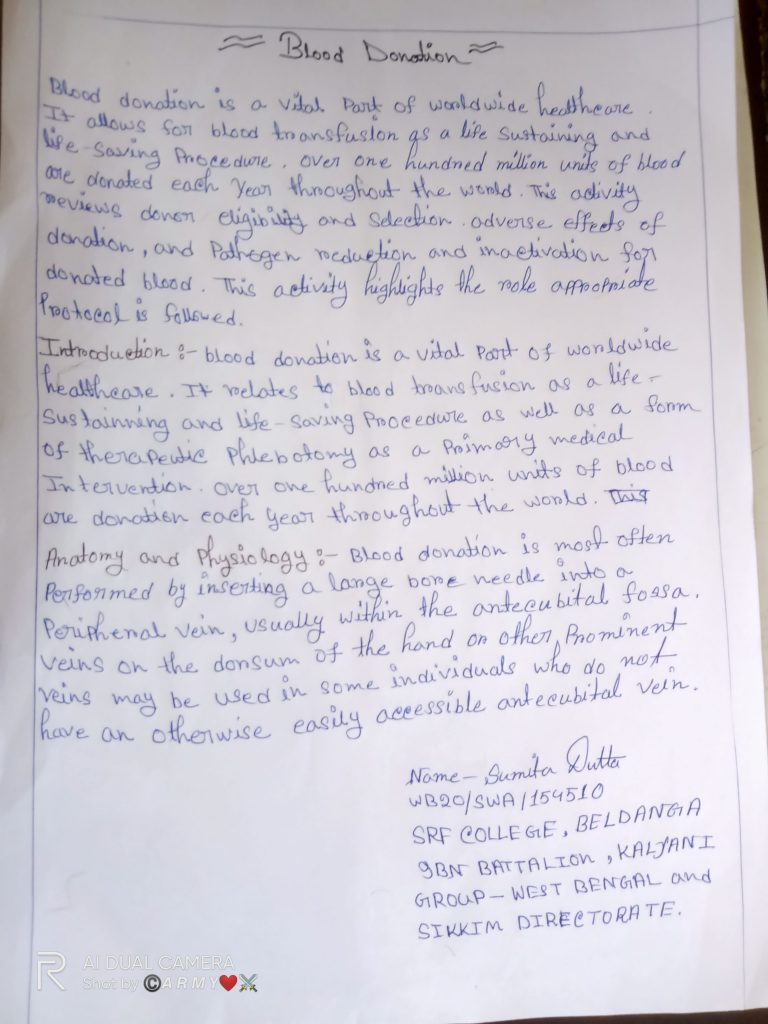 Blood Donation
Blood donation is a vital Part of worldwide healthcare.
It allows for blood transfusion as a life sustaining and
life-saving Procedure. over one hundred million units of blood
are donated each Year throughout the world. This activity
reviews donor eligibility and selection. adverse effects of
donation, and Pathogen reduction and inactivation for
donated blood. This activity highlights the role appropriate
Protocol is followed.
Introduction :- blood donation is a vital Part of worldwide
healthcare. It relates to blood transfusion as a life-
sustainning and life-saving Procedure as well as a form
of therapeutic Phlebotomy as a Primary medical
Intervention. over one hundred million units of blood
are donation each Year throughout the world. This
Anatomy and Physiology :- Blood donation is most often
Performed by inserting a large bore needle into a
Peripheral vein, usually within the antecubital fossa.
veins on the dorsum of the hand or other, Prominent
veins may be used in some individuals who do not
have an otherwise easily accessible antecubital vein.
Name - Sumita Dutta
WB20/SWA/154510
SRF COLLEGE, BELDANGA
9BN BATTALION, KALYANI
GROUP - WEST BENGAL and
SIKKIM DIRECTORATE.
AI DUAL CAMERA
Shot by ©ARMY❤️⚔️